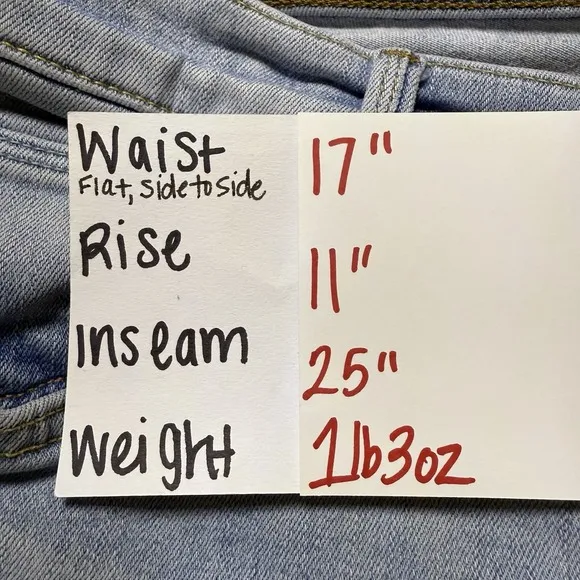 Waist 17"
Flat, side to side
Rise 11"
Inseam 25"
Weight 1lb3oz